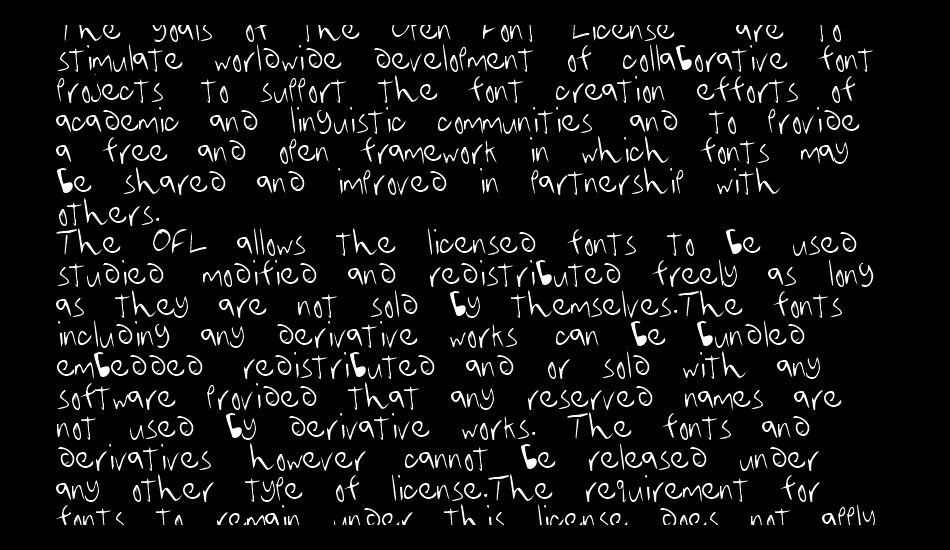 The goals of the Open Font License are to
stimulate worldwide development of collaborative font
projects to support the font creation efforts of
academic and linguistic communities and to provide
a free and open framework in which fonts may
be shared and improved in partnership with
others.
The OFL allows the licensed fonts to be used
studied modified and redistributed freely as long
as they are not sold by themselves.The fonts
including any derivative works can be bundled
embedded redistributed and or sold with any
software provided that any reserved names are
not used by derivative works. The fonts and
derivatives however cannot be released under
any other type of license.The requirement for
fonts to remain under this license does not apply